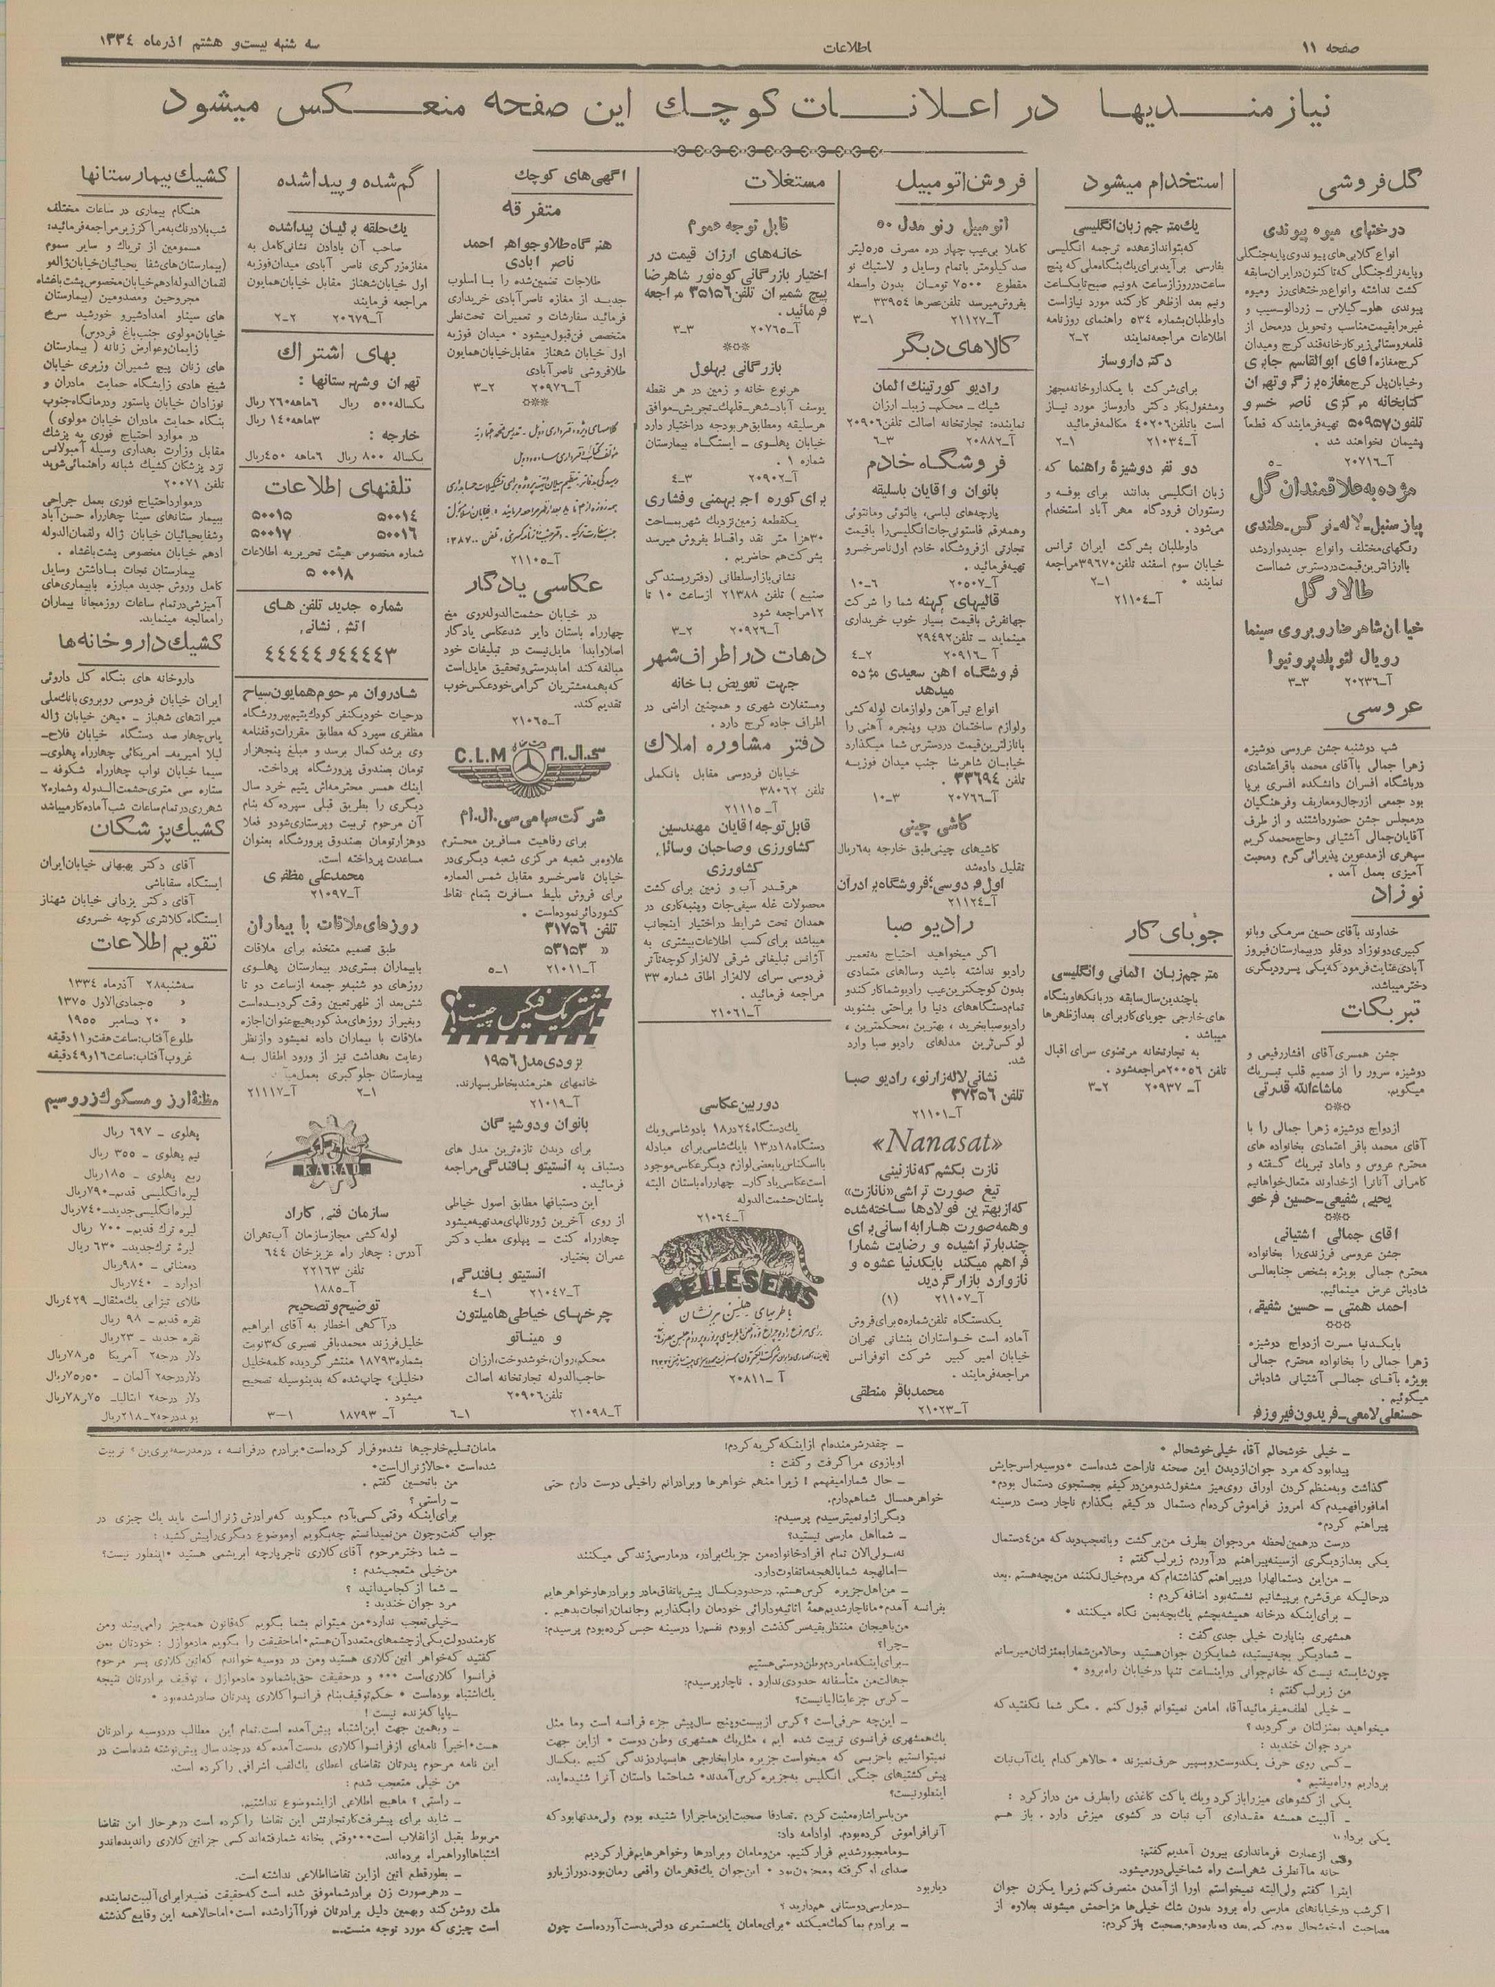 صفحه ۱۱
اطلاعات
سه شنبه بیست و هشتم آذرماه ۱۳۳۴
نیازمندیها در اعلانات کوچک این صفحه منعکس میشود
گل فروشی
درختهای میوه پیوندی
انواع گلابی‌های پیوندی و پایه جنگلی
کتابخانه مرکزی ناصر خسرو
تلفون ۵۰۹۵۷ تهیه فرمایند که قطعاً
پشیمان نخواهند شد .
آ-۲۰۷۱۶
مژده به علاقمندان گل
پیاز سنبل-لاله-نرگس-هلندی
رنگهای مختلف و انواع جدید وارد شد
با ارزانترین قیمت در دسترس شما است
طالار گل
خیابان شاهرضا روبروی سینما
رویال لئوپلد پرونیوا
آ-۲۰۲۳۶ ۳-۳
عروسی
شب دوشنبه جشن عروسی دوشیزه
زهرا جمالی با آقای محمد باقر اعتمادی
در باشگاه افسران دانشکده افسری برپا
بود جمعی از رجال و معاریف و فرهنگیان
در مجلس جشن حضور داشتند و از طرف
آقایان جمالی آشتیانی و حاج محمد کریم
سپهری از مدعوین پذیرائی گرم و محبت
آمیزی بعمل آمد .
نوزاد
خداوند بآقای حسین سرمکی و بانو
کبیری دو نوزاد دوقلو در بیمارستان فیروز
آبادی عنایت فرمود که یکی پسر و دیگری
دختر میباشد.
تبریکات
جشن همسری آقای افشار رفیعی و
دوشیزه سرور را از صمیم قلب تبریک
میگویم. ماشاءالله قدرتی
ازدواج دوشیزه زهرا جمالی را با
آقای محمد باقر اعتمادی بخانواده های
محترم عروس و داماد تبریک گفته و
کامرانی آنانرا از خداوند متعال خواهانیم
یحیی شفیعی-حسین فرخو
آقای جمالی آشتیانی
جشن عروسی فرزندی را بخانواده
محترم جمالی بویژه بشخص جنابعالی
شادباش عرض مینمائیم.
احمد همتی - حسین شفیقی
با یکدنیا مسرت ازدواج دوشیزه
زهرا جمالی را بخانواده محترم جمالی
بویژه بآقای جمالی آشتیانی شادباش
میگوئیم .
حسنعلی لامعی-فریدون فیروزفر
استخدام میشود
یک مترجم زبان انگلیسی
که بتواند از عهده ترجمه انگلیسی
بفارسی برآید برای یک بنگاه ملی که پنج
ساعت در روز از ساعت ۸ و نیم صبح تا یک ساعت
و نیم بعد از ظهر کار کند مورد نیاز است
داوطلبان بشماره ۵۳۴ راهنمای روزنامه
اطلاعات مراجعه نمایند ۲-۲
دکتر داروساز
برای شرکت با یک داروخانه مجهز
و مشغول بکار دکتر داروساز مورد نیاز
است با تلفن ۴۰۲۰۶ مکالمه فرمائید
آ-۲۱۰۳۴ ۱-۲
دو نفر دوشیزهٔ راهنما که
زبان انگلیسی بدانند برای بوفه و
رستوران فرودگاه مهرآباد استخدام
می‌شود .
داوطلبان بشرکت ایران ترانس
خیابان سوم اسفند تلفن ۳۹۶۷۰ مراجعه
نمایند . ۱-۲
آ-۲۱۱۰۴
جویای کار
مترجم زبان آلمانی و انگلیسی
با چندین سال سابقه در بانکها و بنگاه
های خارجی جویای کار برای بعد از ظهرها
میباشد
به تجارتخانه مرتضوی سرای اقبال
تلفن ۲۰۰۵۶ مراجعه شود .
آ-۲۰۹۳۷ ۲-۳
فروش اتومبیل
اتومبیل رنو مدل ۵۰
کاملا بی‌عیب چهار دره مصرف ۵ره لیتر
صد کیلومتر با تمام وسایل و لاستیک نو
مقطوع ۷۵۰۰ تومان بدون واسطه
بفروش میرسد تلفن عصرها ۳۳۹۵۴
آ-۲۱۱۲۷ ۱-۳
کالاهای دیگر
رادیو کورتینک آلمان
شیک - محکم - زیبا - ارزان
نماینده: تجارتخانه اصالت تلفن ۲۰۹۰۶
آ-۲۰۸۸۲ ۳-۶
فروشگاه خادم
بانوان و آقایان با سلیقه
پارچه‌های لباسی، پالتوئی و مانتوئی
و همه رقم فاستونی جات انگلیسی را با قیمت
تجارتی از فروشگاه خادم اول ناصر خسرو
تهیه فرمائید .
آ-۲۰۵۰۷ ۶-۱۰
قالیهای کهنه شما را شرکت
جهانفرش با قیمت بسیار خوب خریداری
مینماید - تلفن ۲۹۴۹۲
آ-۲۰۹۱۶ ۲-۴
فروشگاه آهن سعیدی مژده
میدهد
انواع تیرآهن و لوازمات لوله کشی
و لوازم ساختمان درب و پنجره آهنی را
با نازلترین قیمت در دسترس شما میگذارد
خیابان شاهرضا جنب میدان فوزیه
تلفن ۳۳۶۹۴ .
آ-۲۰۷۶۶ ۳-۱۰
کاشی چینی
کاشیهای چینی طبق خارجه به ۶ ریال
تقلیل داده شد
اول فردوسی: فروشگاه برادران
آ-۲۱۱۲۴
رادیو صبا
اگر میخواهید احتیاج به تعمیر
رادیو نداشته باشید و سالهای متمادی
بدون کوچکترین عیب رادیو شما کار کند و
تمام دستگاههای دنیا را براحتی بشنوید
رادیو صبا بخرید ، بهترین ، محکمترین ،
لوکس‌ترین مدلهای رادیو صبا وارد
شد.
نشانی لاله زار نو، رادیو صبا
تلفن ۳۷۲۵۶
آ-۲۱۱۰۱
«Nanasat»
نازت بکشم که نازنینی
تیغ صورت تراشی «نانازت»
که از بهترین فولادها ساخته شده
و همه صورت ها را به آسانی برای
چندبار تراشیده و رضایت شما را
فراهم میکند با یکدنیا عشوه و
ناز وارد بازار گردید
آ-۲۱۱۰۷ (۱)
یکدستگاه تلفن شماره ۵ برای فروش
آماده است خواستاران بنشانی تهران
خیابان امیر کبیر شرکت اتوفرانس
مراجعه فرمایند .
محمد باقر منطقی
آ-۲۱۰۲۳
مستغلات
قابل توجه عموم
خانه‌های ارزان قیمت در
اختیار بازرگانی کوه نور شاهرضا
پیچ شمیران تلفن ۳۵۱۵۶ مراجعه
فرمائید .
آ-۲۰۷۶۵ ۳-۳
بازرگانی بهلول
هر نوع خانه و زمین در هر نقطه
یوسف آباد-شهر-قلهک-تجریش-موافق
هر سلیقه و مطابق هر بودجه در اختیار دارد
خیابان پهلوی - ایستگاه بیمارستان
شماره ۱ .
آ-۲۰۹۰۲ ۳-۴
برای کوره آجر بهمنی و فشاری
یکقطعه زمین نزدیک شهر بمساحت
۳۰ هزار متر نقد و اقساط بفروش میرسد
بشرکت هم حاضریم .
نشانی بازار سلطانی (دفتر ریسندگی
صنیع ) تلفن ۲۱۳۸۸ از ساعت ۱۰ تا
۱۲ مراجعه شود
آ-۲۰۹۲۶ ۲-۳
دهات در اطراف شهر
جهت تعویض با خانه
و مستغلات شهری و همچنین اراضی در
اطراف جاده کرج دارد .
دفتر مشاوره املاک
خیابان فردوسی مقابل بانک ملی
تلفن ۳۸۰۶۲
آ-۲۱۱۱۵
قابل توجه آقایان مهندسین
کشاورزی و صاحبان وسائل
کشاورزی
هر قدر آب و زمین برای کشت
محصولات غله سیفی جات و پنبه کاری در
همدان تحت شرایط در اختیار اینجانب
میباشد برای کسب اطلاعات بیشتری به
آژانس تبلیغاتی شرقی لاله زار کوچه تآتر
فردوسی سرای لاله زار اطاق شماره ۳۳
مراجعه فرمائید .
آ-۲۱۰۶۱
دوربین عکاسی
یکدستگاه ۲۴ در ۱۸ با دو شاسی و یک
دستگاه ۱۸ در ۱۳ با یک شاسی برای مبادله
با اسکناس یا بعضی لوازم دیگر عکاسی موجود
است عکاسی یادگار- چهارراه باستان البته
باستان حشمت الدوله
آ-۲۱۰۶۴
HELLESENS
آ-۲۰۸۱۱
آگهی‌های کوچک
متفرقه
هنرگاه طلا و جواهر احمد
ناصر آبادی
طلاجات تضمین شده را با اسلوب
جدید از مغازه ناصرآبادی خریداری
فرمائید سفارشات و تعمیرات تحت نظر
متخصص فن قبول میشود . میدان فوزیه
اول خیابان شهناز مقابل خیابان همایون
طلا فروشی ناصرآبادی
آ-۲۰۹۷۶ ۲-۳
آ-۲۱۱۰۵
عکاسی یادگار
در خیابان حشمت الدوله روی مخ
چهارراه باستان دایر شد عکاسی یادگار
اصلا و ابدا مایل نیست در تبلیغات خود
مبالغه کند اما بدرستی و تحقیق مایل است
که به همه مشتریان گرامی خود عکس خوب
تقدیم کند.
آ-۲۱۰۶۵
C.L.M سی.ال.ام
شرکت سهامی سی.ال.ام
برای رفاهیت مسافرین محترم
علاوه بر شعبه مرکزی شعبه دیگری در
خیابان ناصرخسرو مقابل شمس العماره
برای فروش بلیط مسافرت بتمام نقاط
کشور دائر نموده است .
تلفن ۳۱۷۵۶
« ۵۳۱۵۳
آ-۲۱۰۱۱ ۱-۵
اشتریک فیکس چیست؟
بزودی مدل ۱۹۵۶
خانمهای هنرمند بخاطر بسپارند.
آ-۲۱۰۱۹
بانوان و دوشیزگان
برای دیدن تازه‌ترین مدل های
دستباف به انستیتو بافندگی مراجعه
فرمائید .
این دستبافها مطابق اصول خیاطی
از روی آخرین ژورنالهای مد تهیه میشود
چهارراه کنت - پهلوی مطب دکتر
عمران بختیار.
انستیتو بافندگی
آ-۲۱۰۴۷ ۱-۴
چرخهای خیاطی هامیلتون
و میناتو
محکم، روان، خوشدوخت، ارزان
حاجب الدوله تجارتخانه اصالت
تلفن ۲۰۹۰۶
آ-۲۱۰۹۸ ۱-۶
گم شده و پیدا شده
یک حلقه برلیان پیدا شده
صاحب آن با دادن نشانی کامل به
مغازه زرگری ناصر آبادی میدان فوزیه
اول خیابان شهناز مقابل خیابان همایون
مراجعه فرمایند
آ-۲۰۶۷۹ ۲-۲
بهای اشتراک
تهران و شهرستانها :
یکساله ۵۰۰ ریال ۶ ماهه ۲۶۰ ریال
۳ ماهه ۱۴۰ ریال
خارجه :
یکساله ۸۰۰ ریال ۶ ماهه ۴۵۰ ریال
تلفنهای اطلاعات
۵۰۰۱۴ ۵۰۰۱۵
۵۰۰۱۶ ۵۰۰۱۷
شماره مخصوص هیئت تحریریه اطلاعات
۵۰۰۱۸
شماره جدید تلفن های
آتش نشانی
۴۴۴۴۳ و ۴۴۴۴۴
شادروان مرحوم همایون سیاح
در حیات خود یکنفر کودک یتیم بپرورشگاه
مظفری سپرد که مطابق مقررات وقفنامه
وی برشد کمال برسد و مبلغ پنجهزار
تومان بصندوق پرورشگاه پرداخت.
اینک همسر محترمه‌اش یتیم خرد سال
دیگری را بطریق قبلی سپرده که بنام
آن مرحوم تربیت و پرستاری شود و فعلا
دو هزار تومان بصندوق پرورشگاه بعنوان
مساعدت پرداخته است.
محمد علی مظفری
آ-۲۱۰۹۷
روزهای ملاقات با بیماران
طبق تصمیم متخذه برای ملاقات
با بیماران بستری در بیمارستان پهلوی
روزهای دو شنبه و جمعه از ساعت دو تا
شش بعد از ظهر تعیین وقت گردیده است
و بغیر از روزهای مذکور بهیچ عنوان اجازه
ملاقات با بیماران داده نمیشود و از نظر
رعایت بهداشت نیز از ورود اطفال به
بیمارستان جلوگیری بعمل میآید
آ-۲۱۱۱۷ ۱-۲
KARAD
سازمان فنی کاراد
لوله کشی مجاز سازمان آب تهران
آدرس : چهار راه عزیز خان ۶۴۴
تلفن ۲۲۱۶۳
آ-۱۸۸۵
توضیح و تصحیح
در آگهی اخطار به آقای ابراهیم
خلیل فرزند محمد باقر نصیری که ۳ نوبت
بشماره ۱۸۷۹۳ منتشر گردیده کلمه خلیل
«خلیلی» چاپ شده که بدینوسیله تصحیح
میشود .
آ-۱۸۷۹۳ ۱-۳
کشیک بیمارستانها
هنگام بیماری در ساعات مختلف
شب بلادرنگ به مراکز زیر مراجعه فرمائید:
مسمومین از تریاک و سایر سموم
مجروحین و مصدومین (بیمارستان
های سینا و امداد شیر و خورشید سرخ
خیابان مولوی جنب باغ فردوس)
زایمان و عوارض زنانه ( بیمارستان
های زنان پیچ شمیران وزیری خیابان
شیخ هادی زایشگاه حمایت مادران و
نوزادان خیابان پاستور و درمانگاه جنوب
بنگاه حمایت مادران خیابان مولوی )
در موارد احتیاج فوری به پزشک
مقابل وزارت بهداری وسیله آمبولانس
نزد پزشکان کشیک شبانه راهنمائی شوید
تلفن ۲۰۰۷۱
در موارد احتیاج فوری بعمل جراحی
بیمار ستانهای سینا چهارراه حسن آباد
و شفا یحیائیان خیابان ژاله و لقمان الدوله
ادهم خیابان مخصوص پشت باغشاه .
بیمارستان نجات با داشتن وسایل
کامل و روش جدید مبارزه با بیماری های
آمیزشی در تمام ساعات روز مجانا بیماران
را معالجه مینماید.
کشیک داروخانه ها
داروخانه های بنگاه کل داروئی
ایران خیابان فردوسی روبروی بانک ملی
کشیک پزشکان
آقای دکتر بهبهانی خیابان ایران
ایستگاه سقاباشی
آقای دکتر یزدانی خیابان شهناز
ایستگاه کلانتری کوچه خسروی
تقویم اطلاعات
سه‌شنبه ۲۸ آذرماه ۱۳۳۴
« ۵ جمادی الاول ۱۳۷۵
« ۲۰ دسامبر ۱۹۵۵
طلوع آفتاب: ساعت هفت و ۱۱ دقیقه
غروب آفتاب: ساعت ۱۶ و ۴۹ دقیقه
مظنهٔ ارز و مسکوک زر و سیم
پهلوی - ۶۹۷ ریال
نیم پهلوی - ۳۵۵ ریال
ربع پهلوی - ۱۸۵ ریال
لیره انگلیسی قدیم-۷۹۰ ریال
لیره انگلیسی جدید-۷۴۰ ریال
لیره ترک قدیم-۷۰۰ ریال
لیرهٔ ترک جدید-۶۳۰ ریال
ده مناتی - ۹۸۰ ریال
ادوارد - ۷۴۰ ریال
طلای تیزابی یک مثقال- ۴۲۹ ریال
نقره قدیم - ۹۸ ریال
نقره جدید - ۲۳ ریال
- خیلی خوشحالم آقا، خیلی خوشحالم .
پیدا بود که مرد جوان از دیدن این صحنه ناراحت شده است . دوسیه را سر جایش
گذاشت و به منظم کردن اوراق روی میز مشغول شد و من در کیفم بجستجوی دستمال بودم.
اما فورا فهمیدم که امروز فراموش کرده‌ام دستمال در کیفم بگذارم ناچار دست در سینه
پیراهنم کردم.
درست در همین لحظه مرد جوان بطرف من برگشت و با تعجب دید که من ۴ دستمال
یکی بعد از دیگری از سینه پیراهنم در آوردم زیر لب گفتم :
- من این دستمالها را در پیراهنم گذاشته‌ام که مردم خیال نکنند من بچه هستم. بعد
در حالیکه عرق شرم بر پیشانیم نشسته بود اضافه کردم :
- برای اینکه در خانه همیشه بچشم یک بچه بمن نگاه میکنند .
همشهری بناپارت خیلی جدی گفت :
- شما دیگر بچه نیستید، شما یکزن جوان هستید و حالا من شما را بمنزلتان میرسانم
چون شایسته نیست که خانم جوانی در اینساعت تنها در خیابان راه برود .
من زیر لب گفتم :
- خیلی لطف میفرمائید آقا، اما من نمیتوانم قبول کنم . مگر شما نگفتید که
میخواهید بمنزلتان برگردید ؟
مرد جوان خندید :
- کسی روی حرف یکدوست روبسپیر حرف نمیزند . حالا هر کدام یک آب نبات
برداریم و راه بیفتیم .
یکی از کشوهای میز را باز کرد و یک پاکت کاغذی را بطرف من دراز کرد :
- آلبیت همیشه مقداری آب نبات در کشوی میزش دارد . باز هم
یکی بردارید
وقتی از عمارت فرمانداری بیرون آمدیم گفتم:
خانه ما آنطرف شهر است راه شما خیلی دور میشود.
اینرا گفتم ولی البته نمیخواستم او را از آمدن منصرف کنم زیرا یکزن جوان
اگر شب در خیابانهای مارسی راه برود بدون شک خیلی‌ها مزاحمش میشوند بعلاوه از
مصاحبت او خوشحال بودم. کمی بعد دوباره در صحبت باز کردم:
- چقدر شرمنده‌ام از اینکه گریه کردم؛
او بازوی مرا گرفت و گفت :
- حال شما را میفهمم ؛ زیرا منهم خواهرها و برادرانم را خیلی دوست دارم حتی
خواهر همسال شما هم دارم.
دیگر از او نمیترسیدم پرسیدم:
- شما اهل مارسی نیستید؟
نه- ولی الان تمام افراد خانواده من جز یک برادر، در مارسی زندگی میکنند
- اما لهجه شما با لهجه ما تفاوت دارد.
- من اهل جزیره کرس هستم. در حدود یکسال پیش با تفاق مادر و برادرها و خواهرهایم
بفرانسه آمدم. ما ناچار شدیم همهٔ اثاثیه و دارائی خودمان را بگذاریم و جانمان را نجات بدهیم .
من با هیجان منتظر بقیه سرگذشت او بودم نفسم را در سینه حبس کرده بودم پرسیدم:
- چرا؟
- برای اینکه ما مردم وطن دوستی هستیم
جهالت من متأسفانه حدودی ندارد . ناچار پرسیدم:
- کرس جزء ایتالیا نیست؟
- این چه حرفی است ؟ کرس از بیست و پنج سال پیش جزء فرانسه است و ما مثل
یک همشهری فرانسوی تربیت شده ایم ، مثل یک همشهری وطن دوست . از این جهت
نمیتوانستیم با حزبی که میخواست جزیره ما را بخارجی ها بسپارد زندگی کنیم .یکسال
پیش کشتیهای جنگی انگلیس به جزیره کرس آمدند. شما حتما داستان آنرا شنیده‌اید.
اینطور نیست؟
من با سر اشاره مثبت کردم . تصادفا صحبت این ماجرا را شنیده بودم ولی مدتها بود که
آنرا فراموش کرده بودم. او ادامه داد:
- و ما مجبور شدیم فرار کنیم. من و مامان و برادرها و خواهرهایم فرار کردیم
صدای او گرفته و محزون بود . این جوان یک قهرمان واقعی رمان بود. دور از یار و
دیار بود
- در مارسی دوستانی هم دارید ؟
- برادرم بما کمک میکند . برای مامان یک مستمری دولتی بدست آورده است چون
مامان تسلیم خارجیها نشده و فرار کرده است. برادرم در فرانسه ، در مدرسه «بری‌ین» تربیت
شده است . حالا ژنرال است.
من با تحسین گفتم .
- راستی ؟
برای اینکه وقتی کسی بآدم میگوید که برادرش ژنرال است باید یک چیزی در
جواب گفت و چون من نمیدانستم چه بگویم او موضوع دیگری را پیش کشید :
- شما دختر مرحوم آقای کلاری تاجر پارچه ابریشمی هستید . اینطور نیست؟
من خیلی متعجب شدم :
- شما از کجا میدانید ؟
مرد جوان خندید :
- خیلی تعجب ندارد . من میتوانم بشما بگویم که قانون همه چیز را می‌بیند و من
کارمند دولت یکی از چشمهای متعدد آن هستم . اما حقیقت را بگویم مادموازل : خودتان بمن
گفتید که خواهر اتین کلاری هستید و من در دوسیه خواندم که اتین کلاری پسر مرحوم
فرانسوا کلاری است ... و در حقیقت حق با شما بود مادموازل ، توقیف برادرتان نتیجه
یک اشتباه بوده است . حکم توقیف بنام فرانسوا کلاری پدرتان صادر شده بود .
- پاپا که زنده نیست !
- و بهمین جهت این اشتباه پیش آمده است. تمام این مطالب در دوسیه برادرتان
هست. اخیراً نامه‌ای از فرانسوا کلاری بدست آمده که در چند سال پیش نوشته شده است در
این نامه مرحوم پدرتان تقاضای اعطای یک لقب اشرافی را کرده است.
من خیلی متعجب شدم :
- راستی ؟ ما هیچ اطلاعی از اینموضوع نداشتیم.
- شاید برای پیشرفت کار تجارتش این تقاضا را کرده است در هر حال این تقاضا
مربوط بقبل از انقلاب است...وقتی بخانه شما رفته‌اند کسی جز اتین کلاری را ندیده‌اند و
اشتباها او را همراه برده‌اند.
- بطور قطع اتین از این تقاضا اطلاعی نداشته است.
- در هر صورت زن برادر شما موفق شده است که حقیقت قضیه را برای آلبیت نماینده
ملت روشن کند و بهمین دلیل برادرتان فوراً آزاد شده است . اما حالا همه این وقایع گذشته
است چیزی که مورد توجه منست....